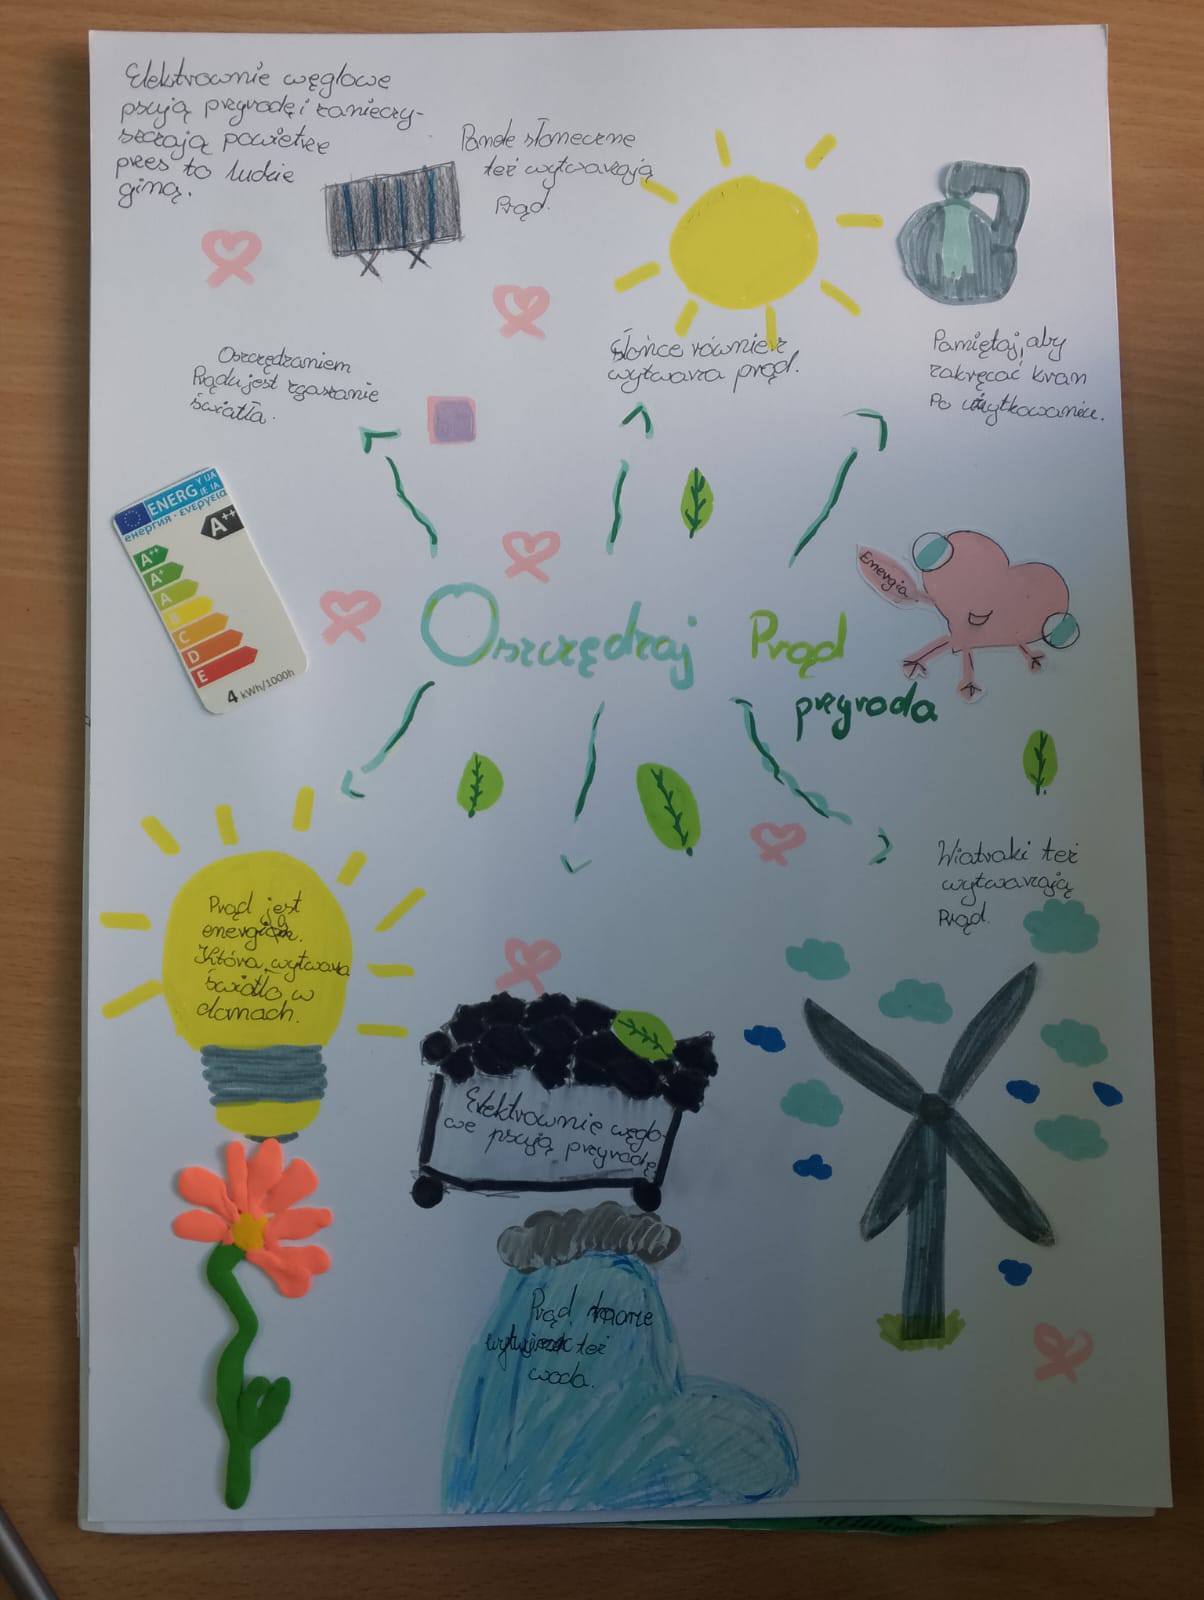 Elektrownie węglowe
psują przyrodę i zanieczy-
szczają powietrze
przes to ludzie
giną.
Panele słoneczne
też wytwarzają
Prąd.
Oszczędzaniem
Prądu jest zgaszanie
światła.
Słońce również
wytwarza prąd.
Pamiętaj, aby
zakręcać kran
Po użytkowaniu.
ENERG
Y IJA
IE IA
енергия · ενεργεια
A++
A++
A+
A
B
C
D
E
4 kWh/1000h
Energia
Oszczędzaj Prąd
przyroda
Prąd jest
energią.
Która wytwara
światło w
domach.
Wiatraki też
wytwarzają
Prąd.
Elektrownie węglo-
we psują przyrodę
Prąd może
też
woda.